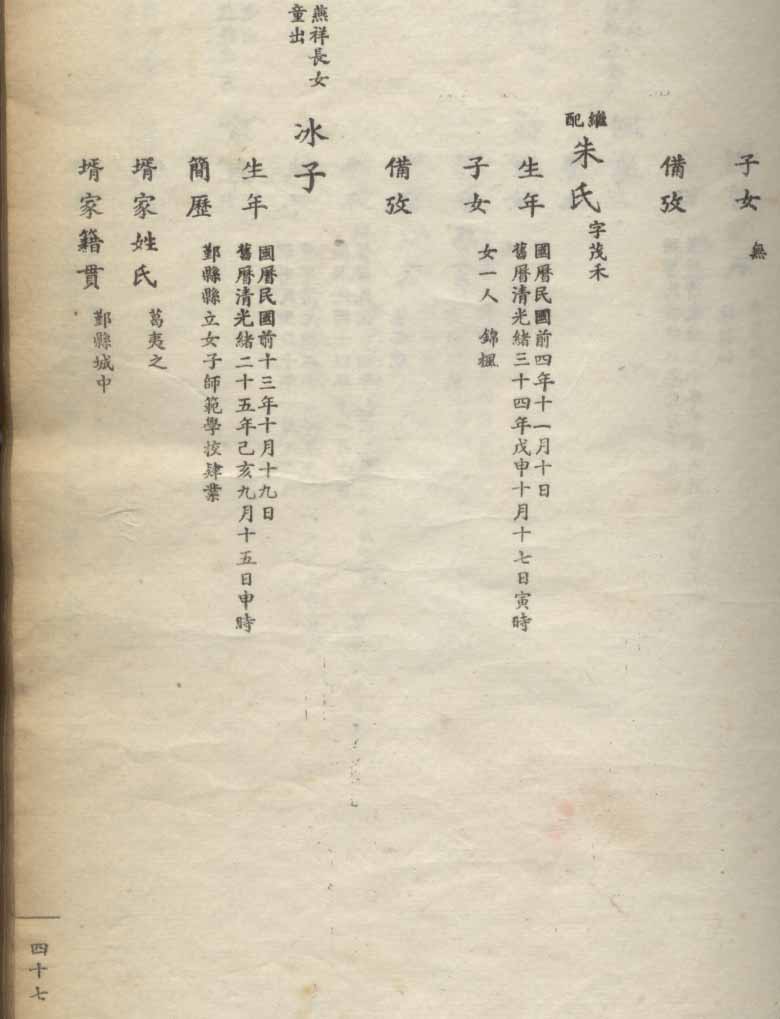 子女 無
備攷
繼配 朱氏 字茂禾
生年 國曆民國前四年十一月十日
舊曆清光緒三十四年戊申十月十七日寅時
子女 女一人 錦楓
備攷
燕祥長女
童出
冰子
生年 國曆民國前十三年十月十九日
舊曆清光緒二十五年己亥九月十五日申時
簡歷 鄞縣縣立女子師範學校肄業
壻家姓氏 葛夷之
壻家籍貫 鄞縣城中
四十七